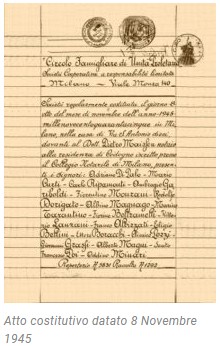 "Circolo Famigliare di Unità Proletaria
Società Cooperativa a responsabilità limitata
Milano - Viale Monza 140
Società regolarmente costituita il giorno 8
otto del mese di novembre dell'anno 1945
millenovecentoquarantacinque in Mi-
lano, nella casa di Via S. Antonio
davanti al Dott. Pietro notaio
alla residenza di Codogno iscritto presso
il Collegio Notarile di Milano, presen-
ti i Signori: Adriano Di Palo - Mario
Curti - Carlo Ripamonti - Ambrogio Ga-
riboldi - Fiorentino Montani - Rodolfo
Dorigato - Albino Magnago - Marino
Tarantino - Beltramelli - Vitto-
rio Lanzani - Franco Albizzati - Eligio
Bettini - Boracchi -
Giovanni Grassi - Alberto Magni - Santo
Francesco - Oddino Minari
Repertorio N° 3831 Raccolta N° 1000
Atto costitutivo datato 8 Novembre
1945